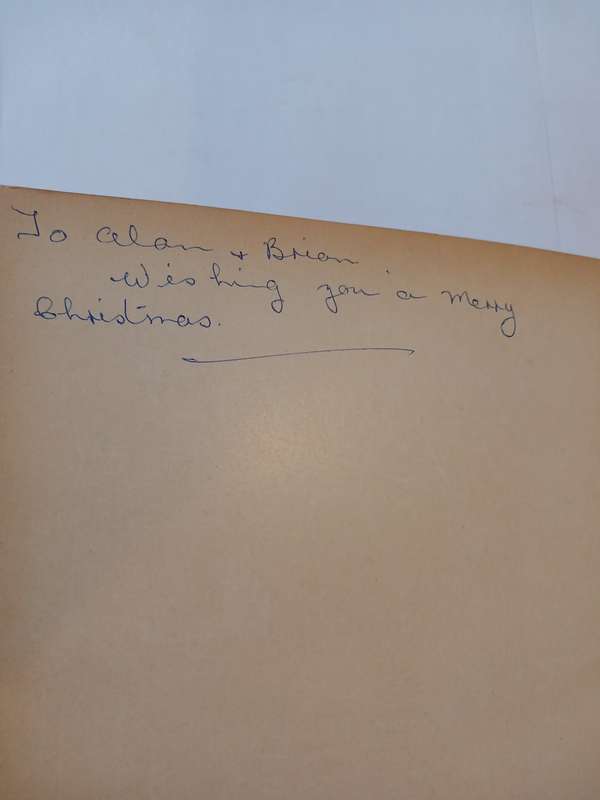 To Alan + Brian
Wishing you a Merry
Christmas.